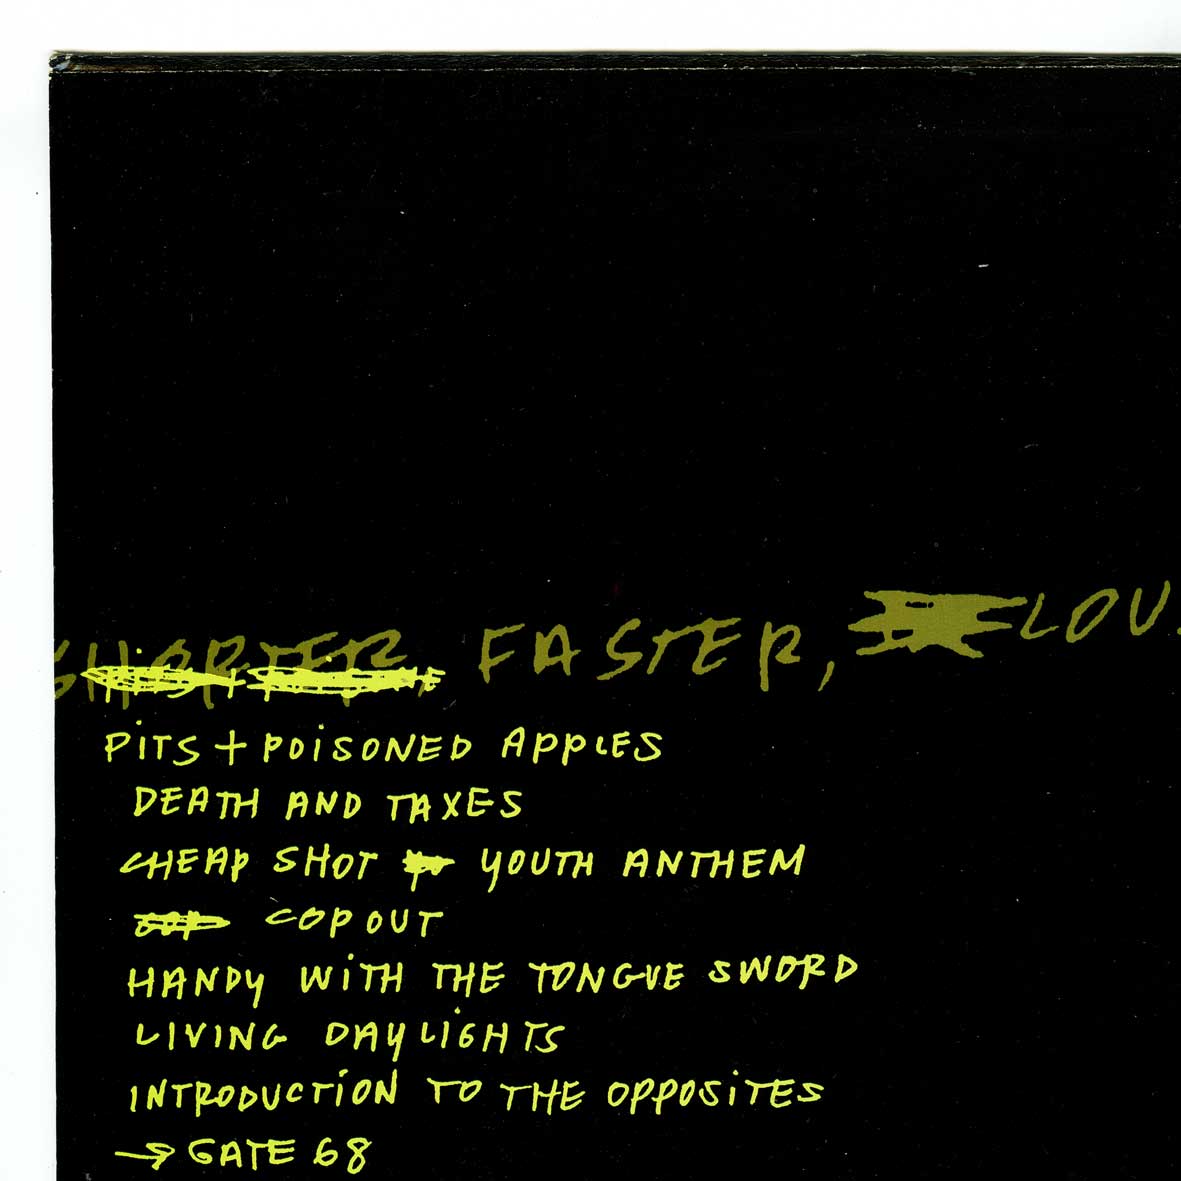 SHORTER, FASTER, LOU
PiTS + POiSONED APPLES
DEATH AND TAXES
CHEAP SHOT YOUTH ANTHEM
COP OUT
HANDY WiTH THE TONGUE SWORD
LIVING DAYLiGHTS
INTRODUCTiON TO THE OPPOSiTES
→ GATE 68